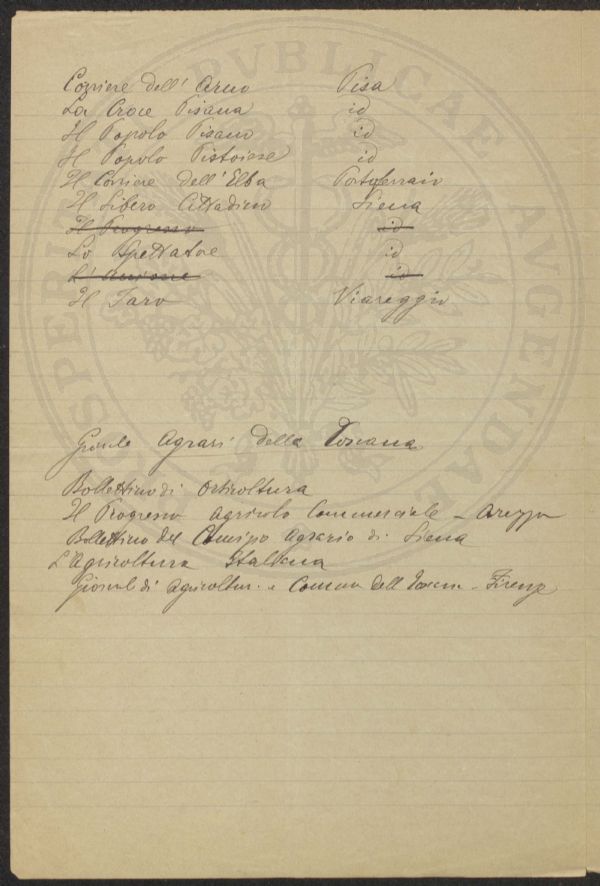 Corriere dell' Arno Pisa
La Croce Pisana id
Il Popolo Pisano id
Il Popolo Pistoiese id
Il Corriere dell'Elba Portoferraio
Il Libero Cittadino Siena
Il Progresso id
Lo Spettatore id
L' id
Il Faro Viareggio
Giornale Agrari della Toscana
Bollettino di Orticoltura
Il Progresso Agricolo Commerciale - Arezzo
Bollettino del Comizio Agrario di Siena
L'Agricoltura Italiana
Giornale di Agricoltur. e Commer dell Toscan - Firenze